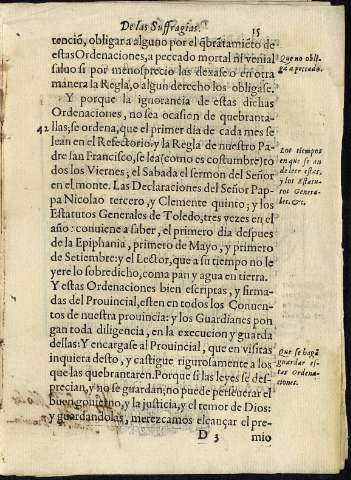 De las Suffragias.
15
tenciõ, obligar a alguno por el q̃bratamiẽto de
estas Ordenaciones, a peccado mortal ni venial
saluo si por menosprecio las dexase o en otra
manera la Regla, o algun derecho los obligase.
Que no obli-
gã a peccado.
Y porque la ignorancia de estas dichas
Ordenaciones, no sea ocasion de quebranta-
42
llas; se ordena, que el primer dia de cada mes se
lean en el Refectorio: y la Regla de nuestro Pa-
dre san Francisco, se lea (como es costumbre) to
dos los Viernes; el Sabada el sermon del Señor
en el monte. Las Declaraciones del Señor Pap-
pa Nicolao tercero, y Clemente quinto; y los
Estatutos Generales de Toledo, tres vezes en el
año: conuiene a saber, el primero dia despues
de la Epiphania, primero de Mayo, y primero
de Setiembre: y el Lector, que a su tiempo no le
yere lo sobredicho, coma pan y agua en tierra.
Los tiempos
en que se an
de leer estas,
y los Estatu-
tos Genera-
les.&c.
Y estas Ordenaciones bien escriptas, y firma-
das del Prouincial, esten en todos los Conuen-
tos de nuestra prouincia: y los Guardianes pon
gan toda diligencia, en la execucion y guarda
dellas: Y encargase al Prouincial, que en visitas
inquiera desto, y castigue rigurosamente a los
que las quebrantaren. Porque si las leyes se des-
precian, y no se guardan; no puede perseuerar el
buen gouierno, y la justicia, y el temor de Dios:
y guardandolas, merezcamos alcançar el pre-
Que se hagã
guardar es-
tas Ordena-
ciones.
D 3
mio